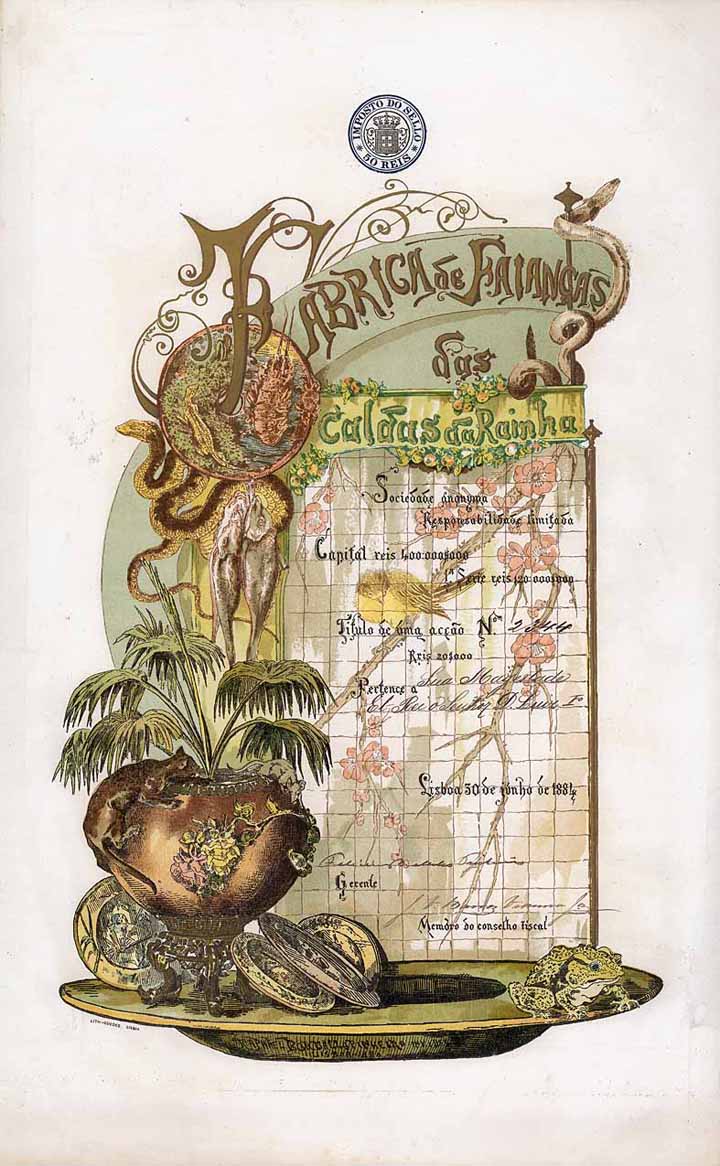 IMPOSTO DO SELLO
50 REIS
FABRICA de FAIANÇAS
das
Caldas da Rainha
Sociedade anonyma
Responsabilidade limitada
Capital reis 400:000$000
1ª Serie reis 120:000$000
Titulo de uma acção N.º
Reis 20$000
Pertence a Sua Magestade
El Rei o Senhor D. Luiz 1º
Lisboa 30 de junho de 1884
Gerente
Membro do conselho fiscal
LITH. GUEDES, LISBOA